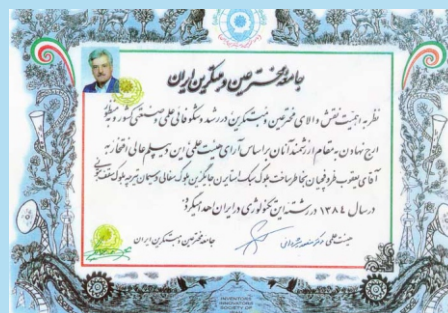 جامعه مخترعین و مبتکرین ایران
نظر به اهمیت نقش والای مخترعین و مبتکرین در رشد و شکوفائی علمی و صنعتی کشور و به منظور
ارج نهادن به مقام ارزشمند آنان بر اساس آرای هیئت علمی این دیپلم عالی افتخار به
آقای یعقوب بخاطر ساخت بلوک سبک جایگزین بلوک سفالی و سیمان
در سال ۱۳۸۴ در رشته این تکنولوژی در ایران اهدا میگردد
هیئت علمی جامعه مخترعین و مبتکرین ایران
INVENTORS
INNOVATORS
SOCIETY OF